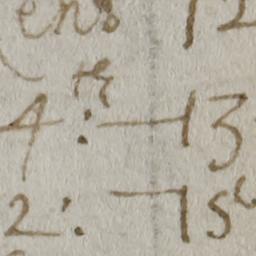 ens 12
4th: 13
2: 15